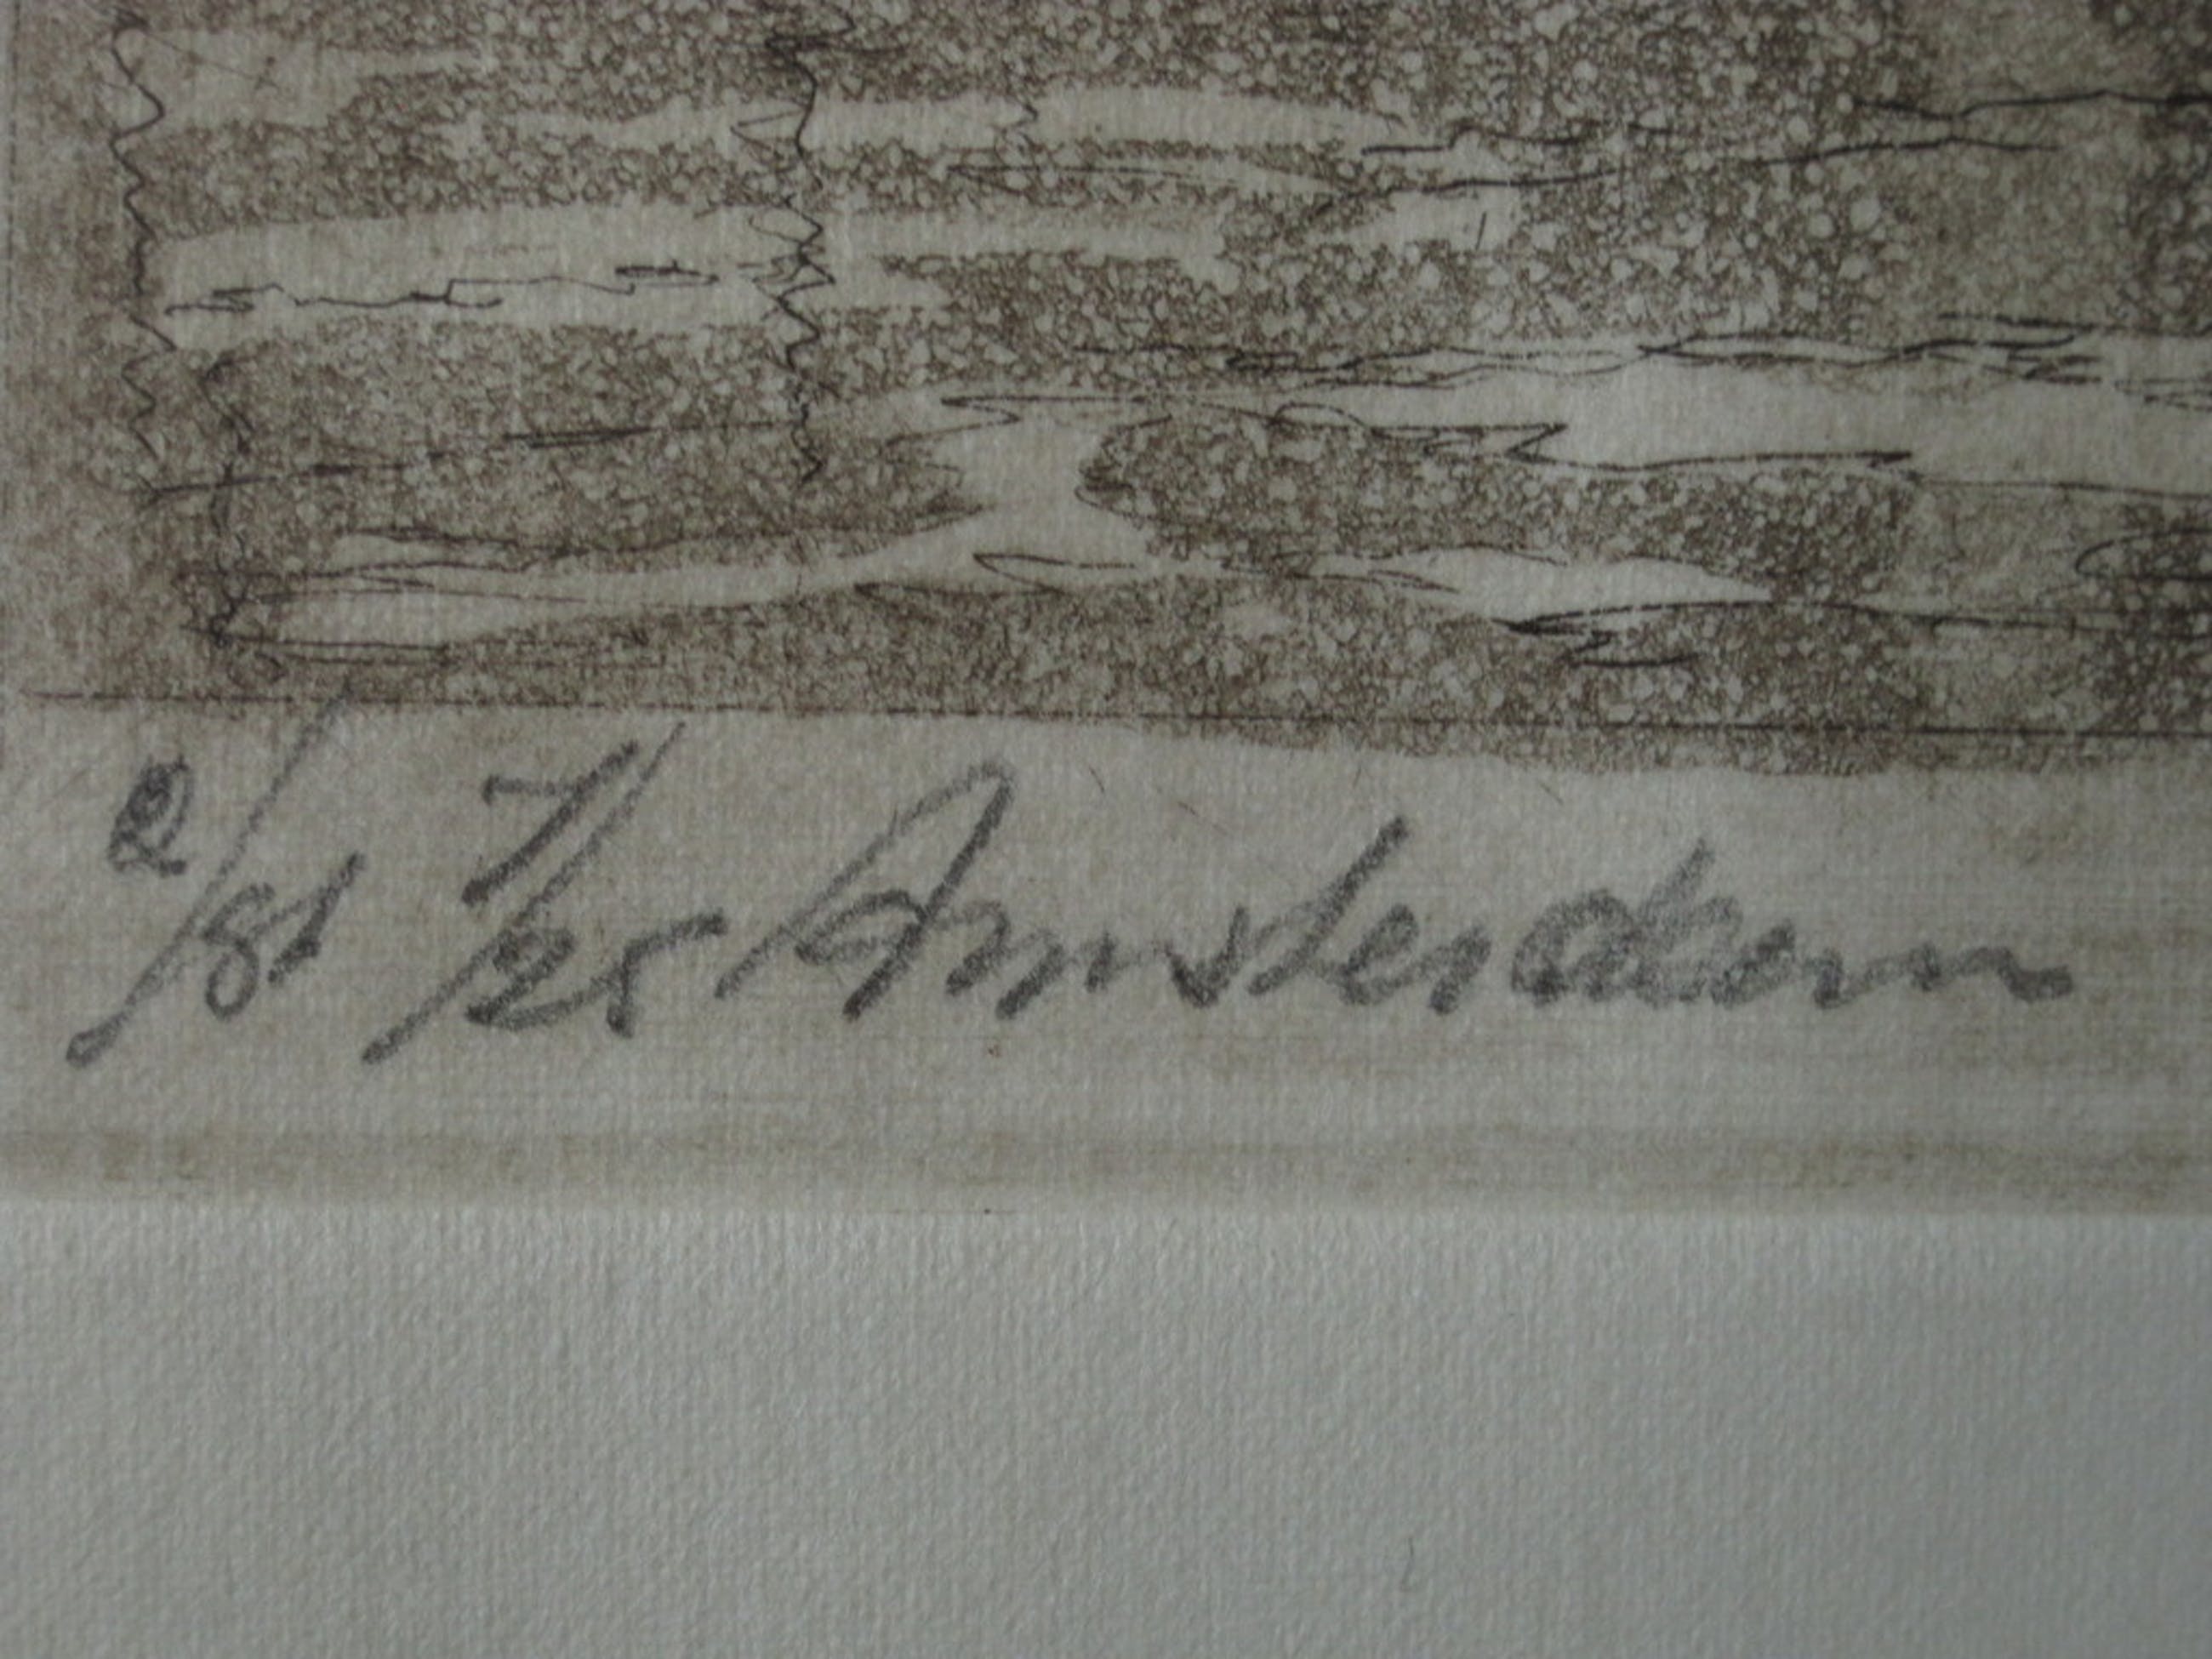 2/81 7/25 Amsterdam